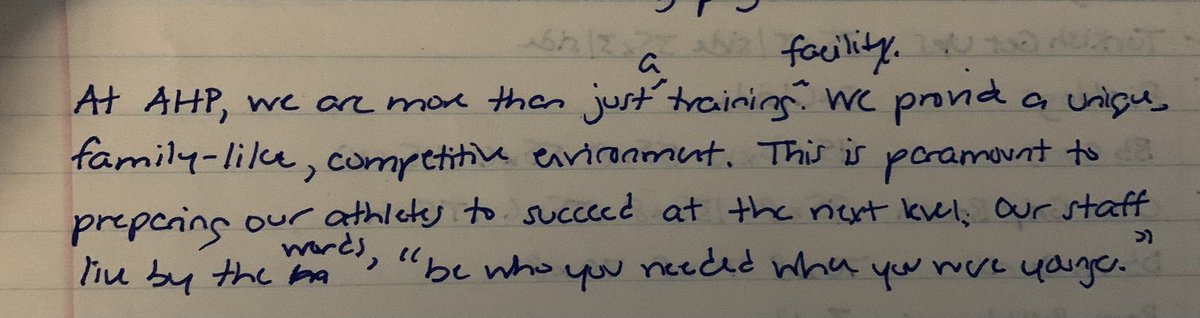 At AHP, we are more than just a training facility. We provide a unique,
family-like, competitive environment. This is paramount to
preparing our athletes to succeed at the next level. Our staff
live by the words, "be who you needed when you were younger."